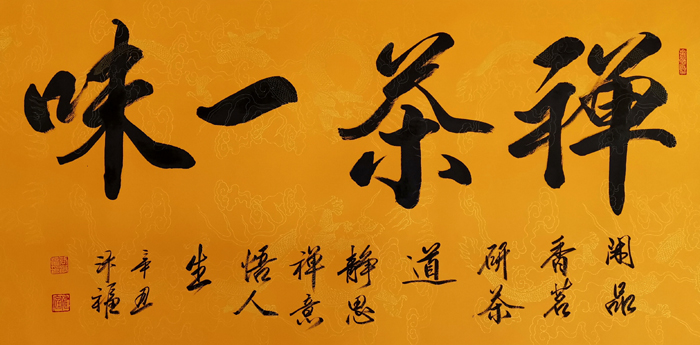 禅茶一味
闲品
香茗
研茶
道
静思
禅意
悟人
生
辛丑